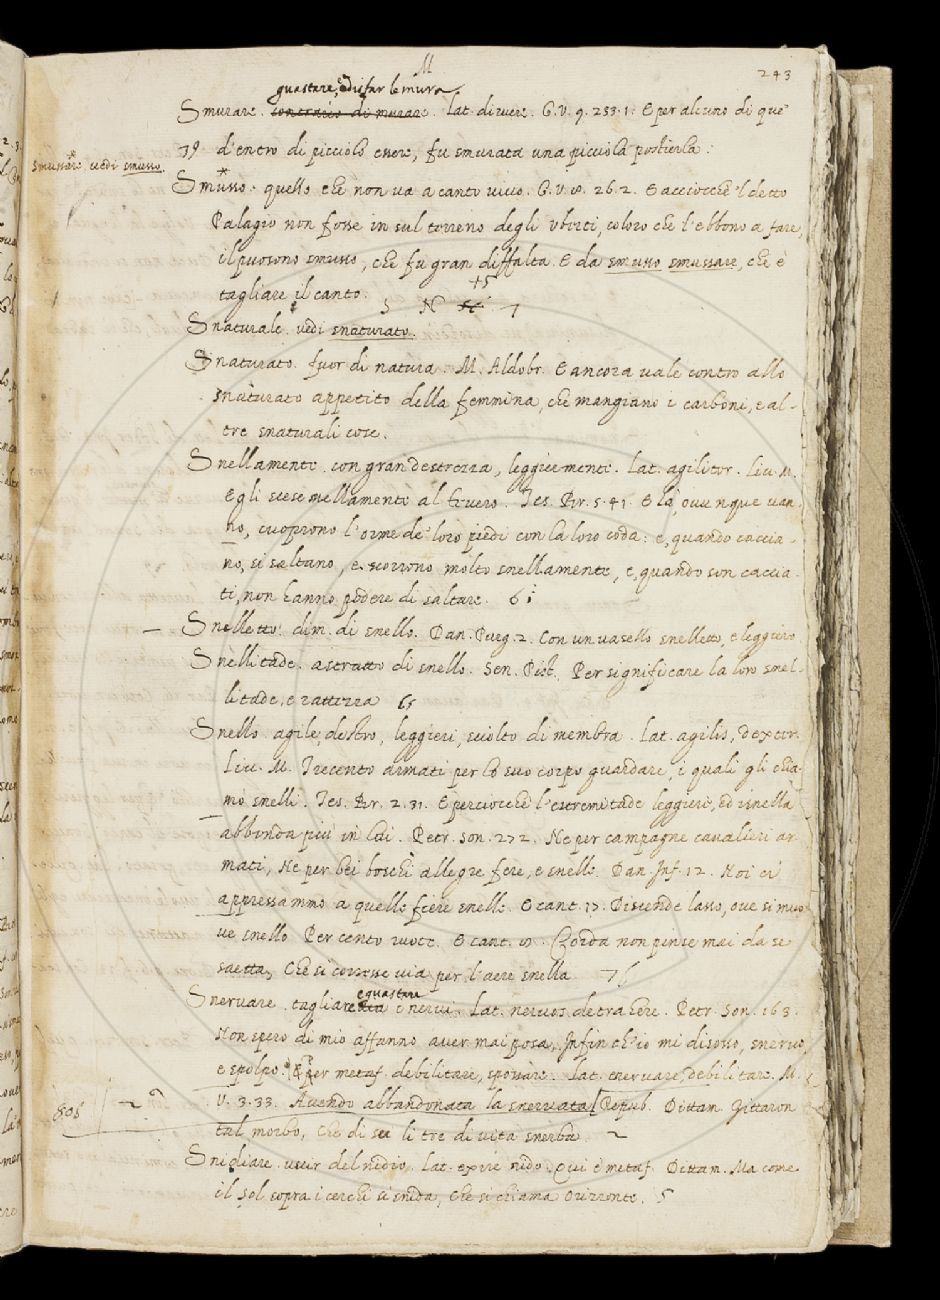 M
243
guastare, e disfar le mura.
Smurare. contrario di murare. Lat. diruere. G. V. 9. 253. 1. E per alcuno di que'
39 d'entro di picciolo essere, fu smurata una picciola postierla:
Smussare vedi smusso.
Smusso. quello che non va a canto vivo. G. V. 8. 26. 2. E acciocche 'l detto
Palagio non fosse in sul terreno degli Vberti, coloro che l'ebbono a fare,
il puosono smusso, che fu gran diffalta. E da smusso smussare, che è
tagliare il canto.
S N
Snaturale. vedi snaturato.
Snaturato. fuor di natura. M. Aldobr. E ancora vale contro allo
snaturato appetito della femmina, che mangiano i carboni, e al-
tre snaturali cose.
Snellamente. con gran destrezza, leggiermente. Lat. agiliter. Liv. M.
Egli scese snellamente al Tevero. Tes. Br. 5. 41. E là, ovunque van-
no, cuoprono l'orme de' loro piedi con la loro coda: e, quando caccia-
no, si saltano, e scorrono molto snellamente, e, quando son caccia-
ti, non hanno podere di saltare.
Snelletto. dim. di snello. Dan. Purg. 2. Con un vasello snelletto, e leggiero
Snellitade. astratto di snello. Sen. Pist. Per significare la loro snel-
litade, e rattezza
Snello. agile, destro, leggieri, sciolto di membra. Lat. agilis, dexter.
Liv. M. Trecento armati per lo suo corpo guardare, i quali gli chia-
mò snelli. Tes. Br. 2. 31. E perciocché l'estremitade leggieri, ed isnella
abbonda più in lui. Petr. son. 272. Ne per campagne cavalieri ar
mati, Ne per bei boschi allegre fere, e snelle. Dan. Inf. 12. Noi ci
appressammo a quelle fiere snelle. E cant. 17. Discende lasso, ove si muo
ve snello Per cento ruote. E cant. 8. Corda non pinse mai da se
saetta, Che si corresse via per l'aere snella
e guastare
Snervare. tagliare i nervi. Lat. nervos detrahere. Petr. Son. 163.
Non spero di mio affanno aver mai posa, Infin ch'io mi disosso, snervo,
e spolpo. E per metaf. debilitare, spossare. Lat. enervare, debilitare. M.
V. 3. 33. Avendo abbandonata la snervata Repub. Dittam. Gittaron
tal morbo, che di sei li tre di vita snerba
Snidiare. uscir del nidio. Lat. exire nido. Qui è metaf. Dittam. Ma come
il Sol sopra i cerchi si snida, Che si chiama Orizzonte. 5